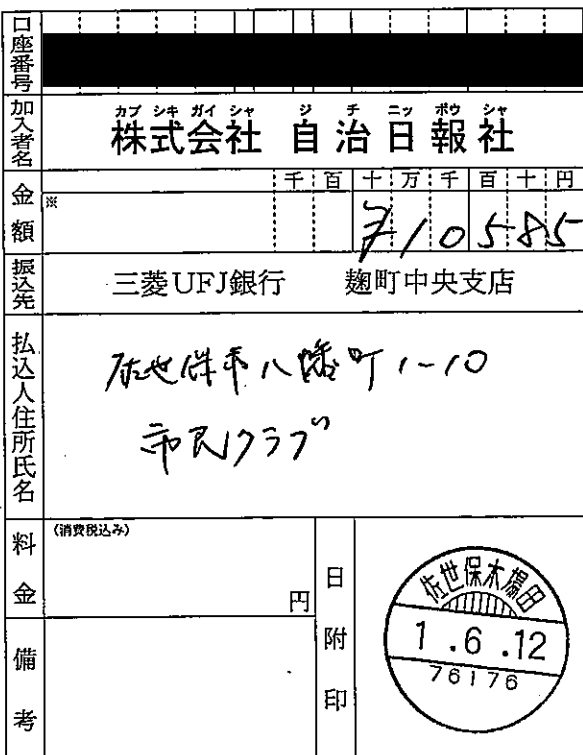 口座番号
加入者名
カブ シキ ガイ シャ ジ チ ニッ ポウ シャ
株式会社 自治日報社
金額
千 百 十 万 千 百 十 円
※
¥10585
振込先
三菱UFJ銀行 麹町中央支店
払込人住所氏名
佐世保市八幡町1-10
市民クラブ
料金
(消費税込み)
円
日附印
佐世保木場田
1.6.12
76176
備考